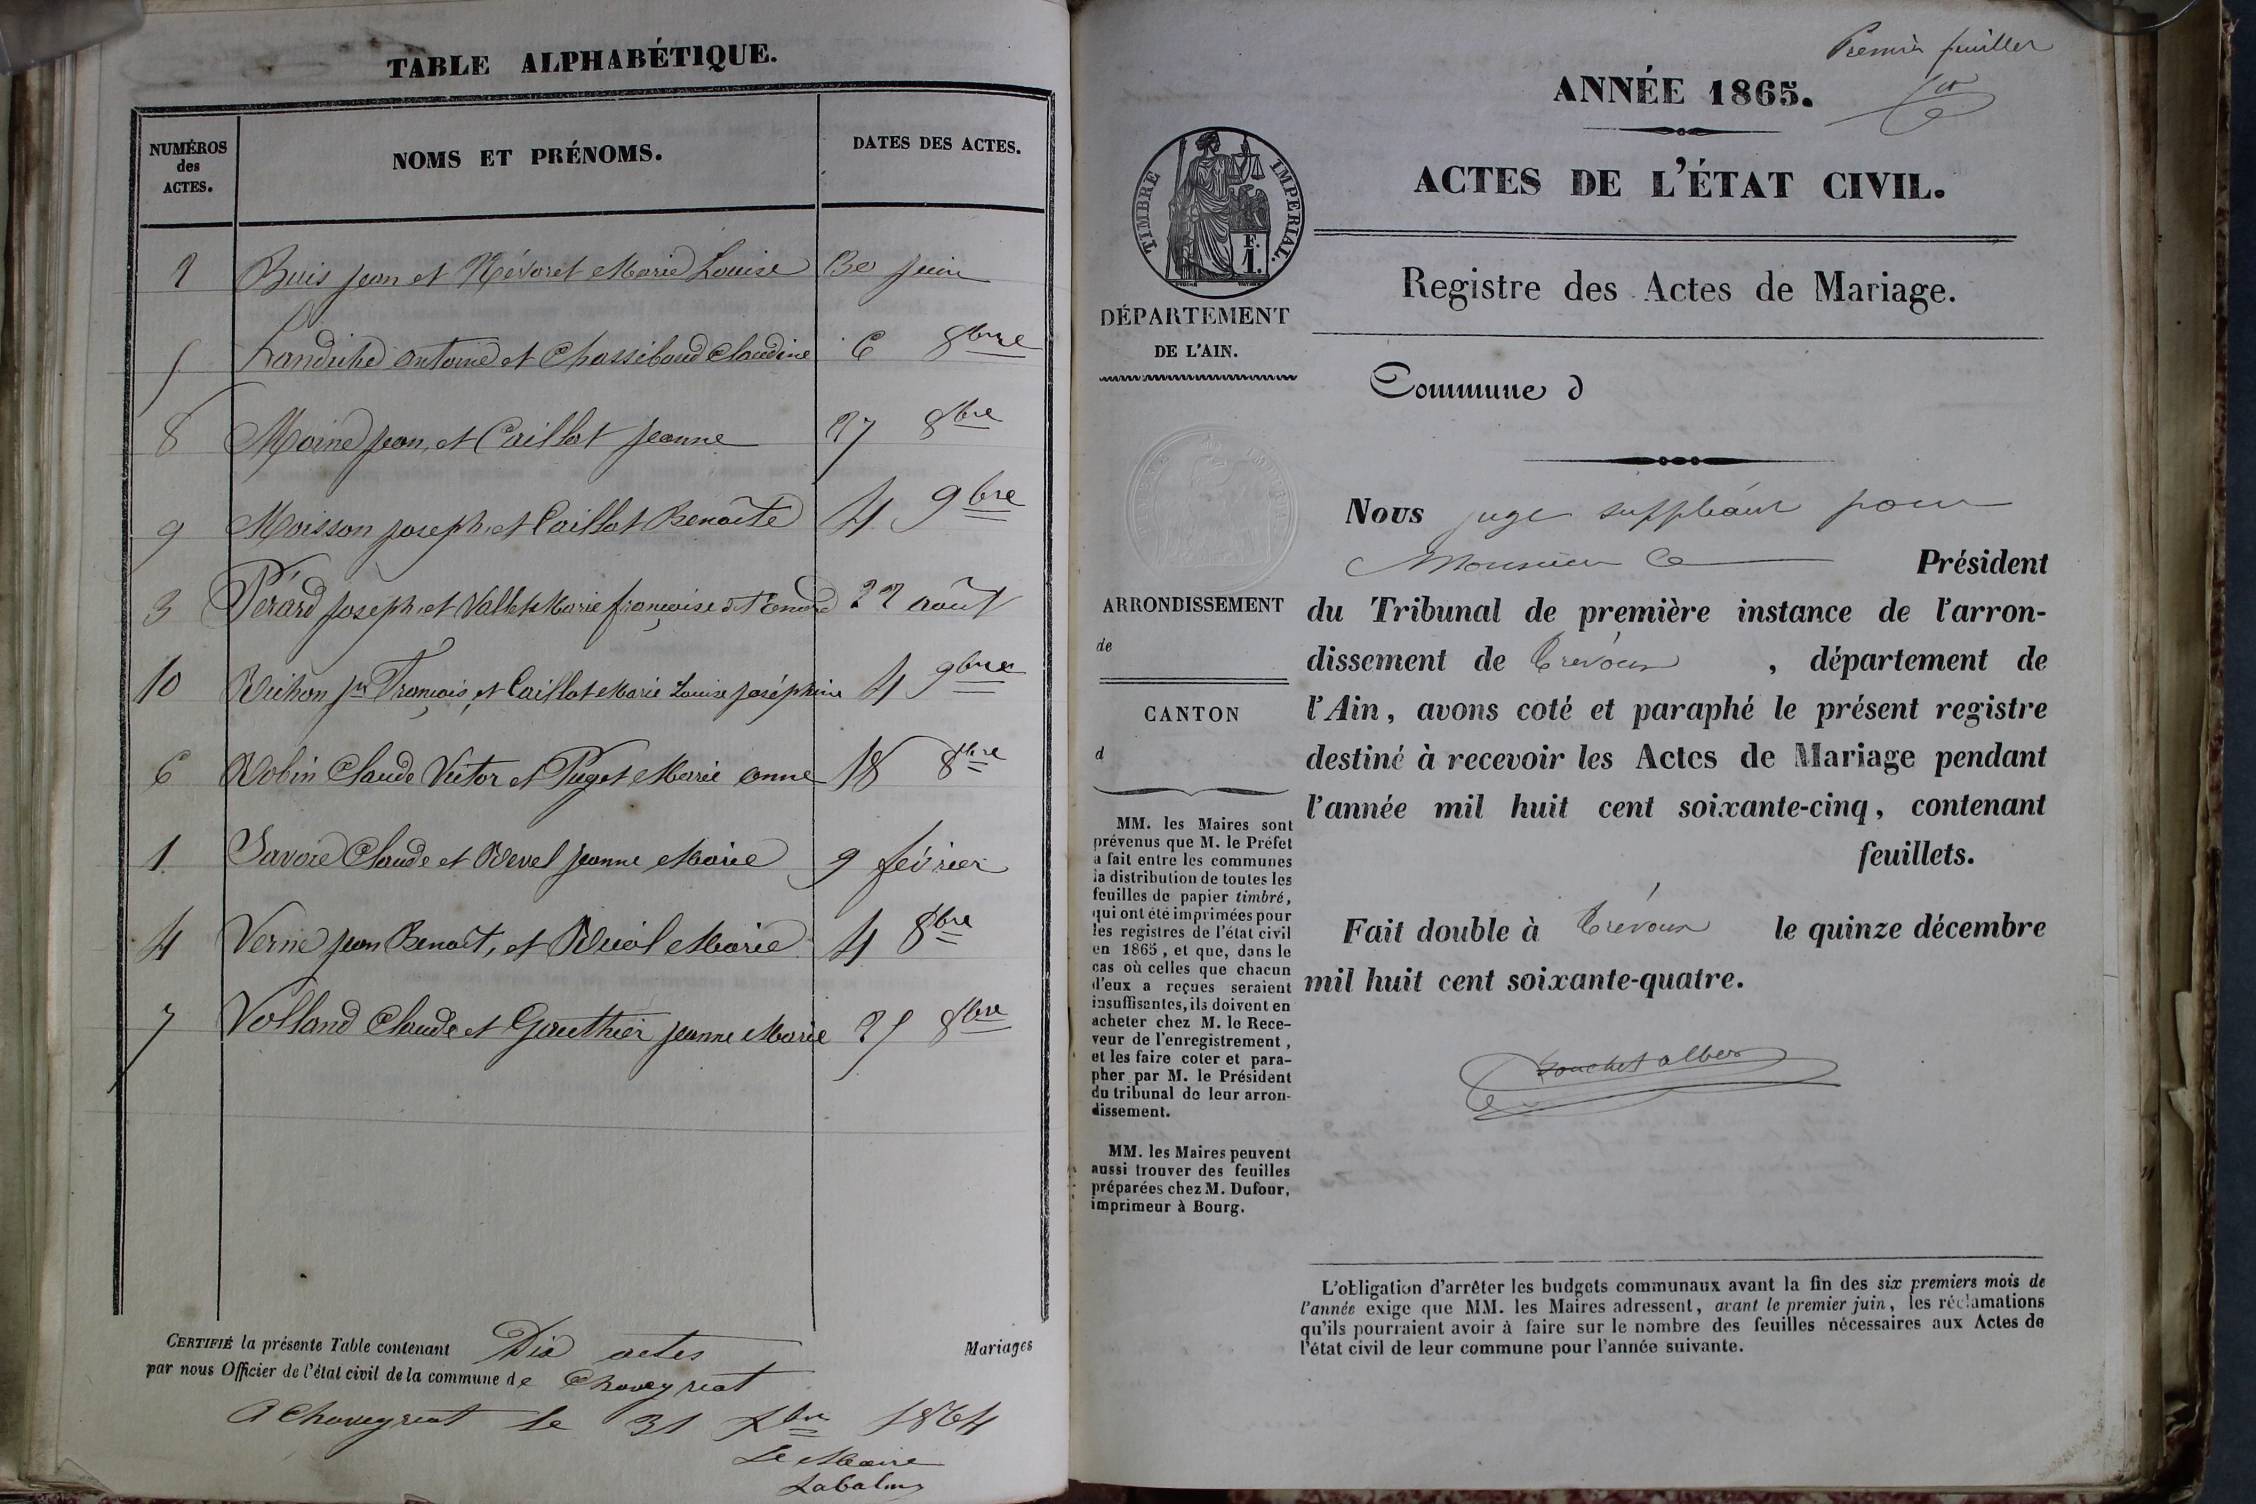 TABLE ALPHABÉTIQUE.
NUMÉROS
des
ACTES.
NOMS ET PRÉNOMS.
DATES DES ACTES.
2 Buis jean et Névoret Marie Louise 30 juin
5 antoine et Claudine 6 8bre
8 Moine jean, et Caillat jeanne 27 8bre
9 Moisson joseph, et Caillat Benoîte 4 9bre
3 Pérard joseph, et Vallet Marie françoise 22 août
10 Richon jn François, et Caillat Marie Louise joséphine 4 9bre
6 Robin Claude Victor et Puget Marie anne 18 8bre
1 Savoie Claude et Revel jeanne Marie 9 février
4 Verne jean Benoît, et Marie 4 8bre
7 Volland Claude et Gauthier jeanne Marie 25 8bre
CERTIFIÉ la présente Table contenant Dix actes Mariages
par nous Officier de l'état civil de la commune de Chaveyriat
A Chaveyriat le 31 Xbre 1864
Le Maire
Premier feuillet
ANNÉE 1865.
ACTES DE L'ÉTAT CIVIL.
TIMBRE IMPÉRIAL.
F.
1.
Registre des Actes de Mariage.
DÉPARTEMENT
DE L'AIN.
Commune d
Nous juge suppléant pour
Monsieur le Président
du Tribunal de première instance de l'arron-
dissement de Trévoux , département de
l'Ain, avons coté et paraphé le présent registre
destiné à recevoir les Actes de Mariage pendant
l'année mil huit cent soixante-cinq, contenant
feuillets.
Fait double à Trévoux le quinze décembre
mil huit cent soixante-quatre.
ARRONDISSEMENT
de
CANTON
d
MM. les Maires sont
prévenus que M. le Préfet
a fait entre les communes
la distribution de toutes les
feuilles de papier timbré,
qui ont été imprimées pour
les registres de l'état civil
en 1865, et que, dans le
cas où celles que chacun
d'eux a reçues seraient
insuffisantes, ils doivent en
acheter chez M. le Rece-
veur de l'enregistrement,
et les faire coter et para-
pher par M. le Président
du tribunal de leur arron-
dissement.
MM. les Maires peuvent
aussi trouver des feuilles
préparées chez M. Dufour,
imprimeur à Bourg.
L'obligation d'arrêter les budgets communaux avant la fin des six premiers mois de
l'année exige que MM. les Maires adressent, avant le premier juin, les réclamations
qu'ils pourraient avoir à faire sur le nombre des feuilles nécessaires aux Actes de
l'état civil de leur commune pour l'année suivante.